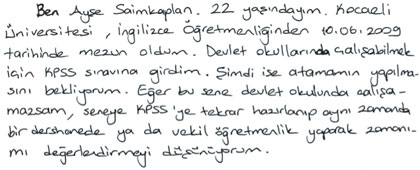 Ben Ayşe Saimkaplan. 22 yaşındayım. Kocaeli
Üniversitesi, İngilizce Öğretmenliğinden 10.06.2009
tarihinde mezun oldum. Devlet okullarında çalışabilmek
için KPSS sınavına girdim. Şimdi ise atamamın yapılma-
sını bekliyorum. Eğer bu sene devlet okulunda çalışa-
mazsam, seneye KPSS'ye tekrar hazırlanıp aynı zamanda
bir dershanede ya da vekil öğretmenlik yaparak zamanı-
mı değerlendirmeyi düşünüyorum.